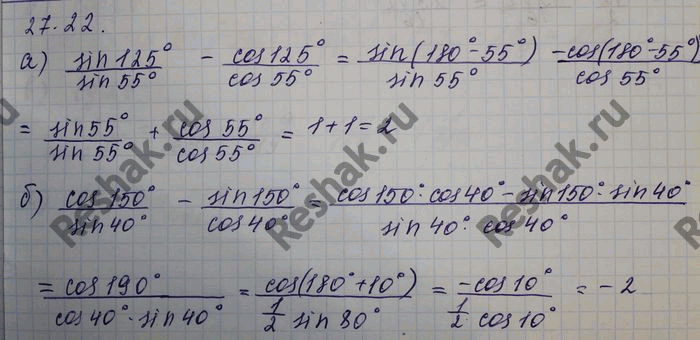 27.22.
а) sin 125° / sin 55° - cos 125° / cos 55° = sin(180°-55°) / sin 55° - cos(180°-55°) / cos 55°
= sin 55° / sin 55° + cos 55° / cos 55° = 1+1=2
б) cos 150° / sin 40° - sin 150° / cos 40° = cos 150°·cos 40° - sin 150°·sin 40° / sin 40°·cos 40°
= cos 190° / cos 40°·sin 40° = cos(180°+10°) / 1/2 sin 80° = -cos 10° / 1/2 cos 10° = -2
Reshak.ru
Reshak.ru
Reshak.ru